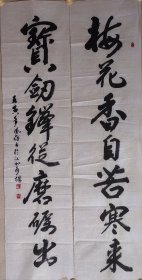 梅花香自苦寒来
寳劔鋒從磨礪出